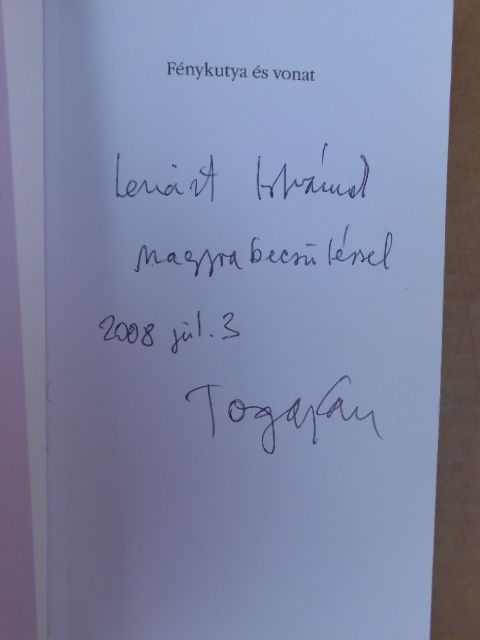 Fénykutya és vonat
Lenárt Istvánnal
nagyrabecsüléssel
2008 júl. 3